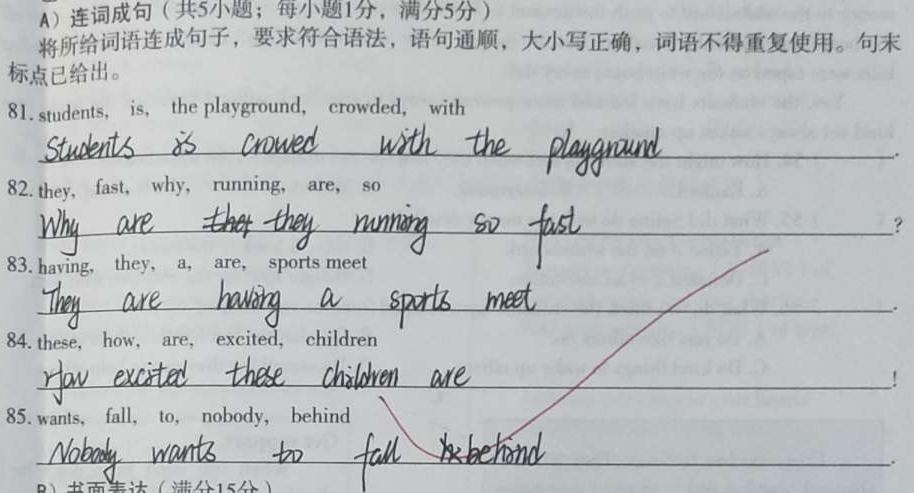 A）连词成句（共5小题；每小题1分，满分5分）
将所给词语连成句子，要求符合语法，语句通顺，大小写正确，词语不得重复使用。句末
标点已给出。
81. students, is, the playground, crowded, with
Students is crowed with the playground.
82. they, fast, why, running, are, so
Why are they running so fast?
83. having, they, a, are, sports meet
They are having a sports meet.
84. these, how, are, excited, children
How excited these children are!
85. wants, fall, to, nobody, behind
Nobody wants to fall behind.
B）书面表达（满分15分）